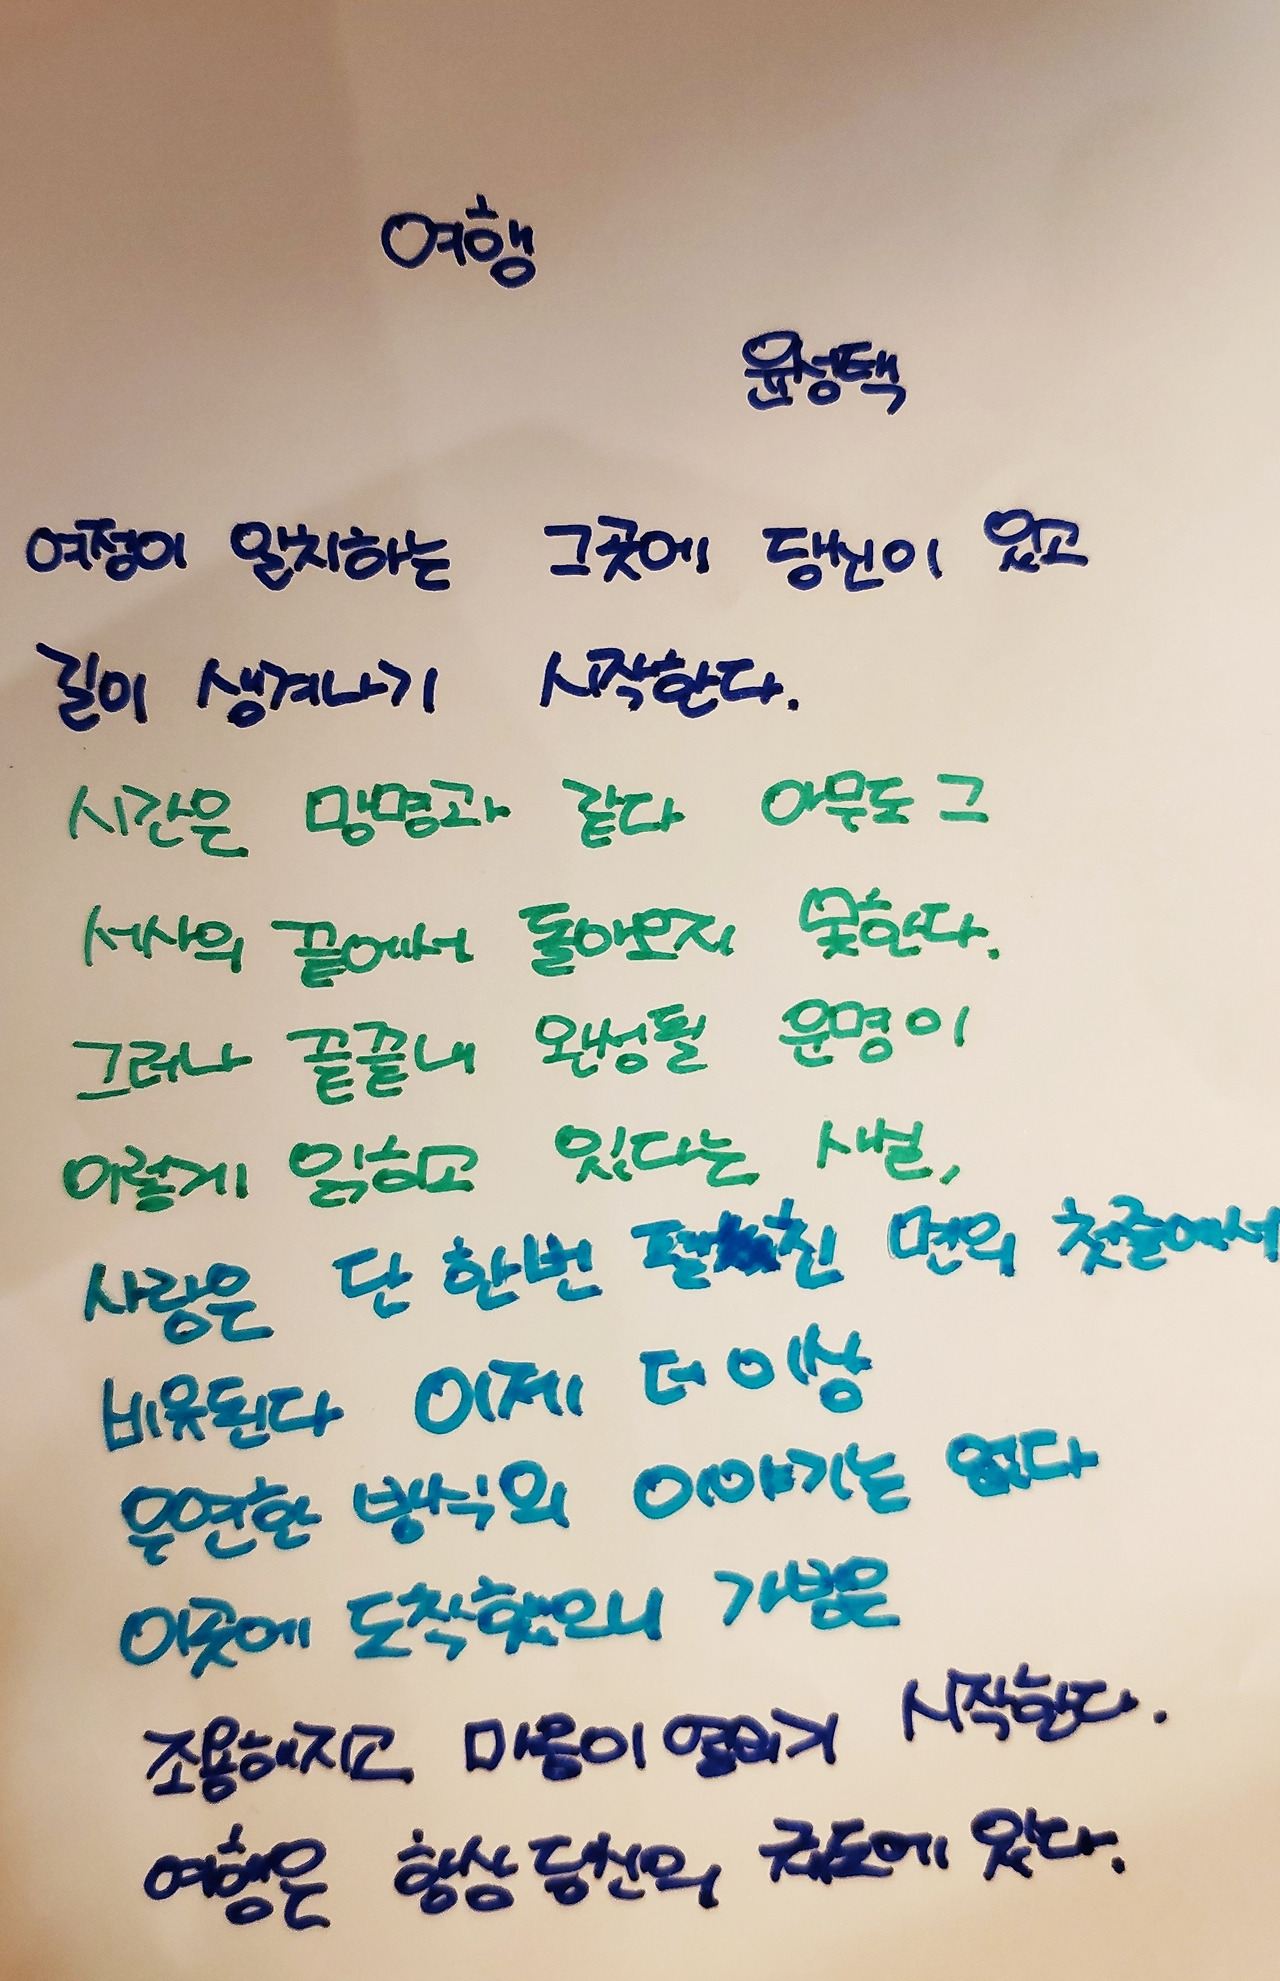 여행
윤성택
여정이 일치하는 그곳에 당신이 있고
길이 생겨나기 시작한다.
시간은 망명과 같다 아무도 그
서사의 끝에서 돌아오지 못한다.
그러나 끝끝내 완성될 운명이
이렇게 읽히고 있다는 사실,
사랑은 단 한번 펼친 면의 첫줄에서
비롯된다 이제 더 이상
우연한 방식의 이야기는 없다
이곳에 도착했으니 가방은
조용해지고 마음이 열리기 시작한다.
여행은 항상 당신의 궤도에 있다.